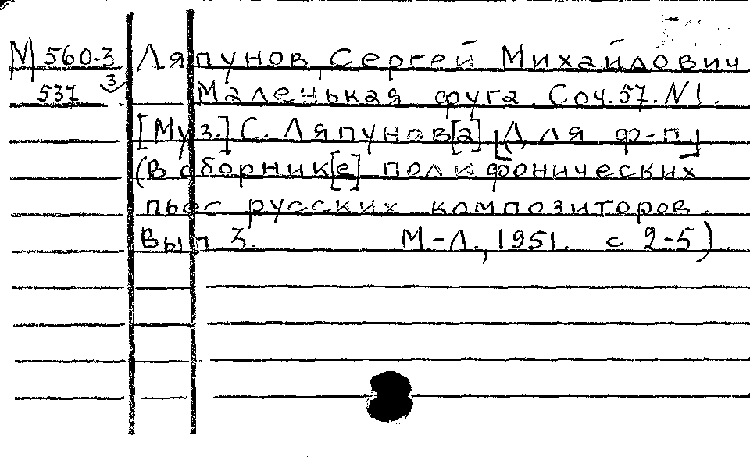 М 560-3 Ляпунов, Сергей Михайлович
3
537 Маленькая фуга. Соч. 57. N 1.
[Муз.] С. Ляпунов[а] [Для ф-п.]
(В сборник[е] полифонических
пьес русских композиторов.
Вып 3. М.-Л., 1951. с 2-5)